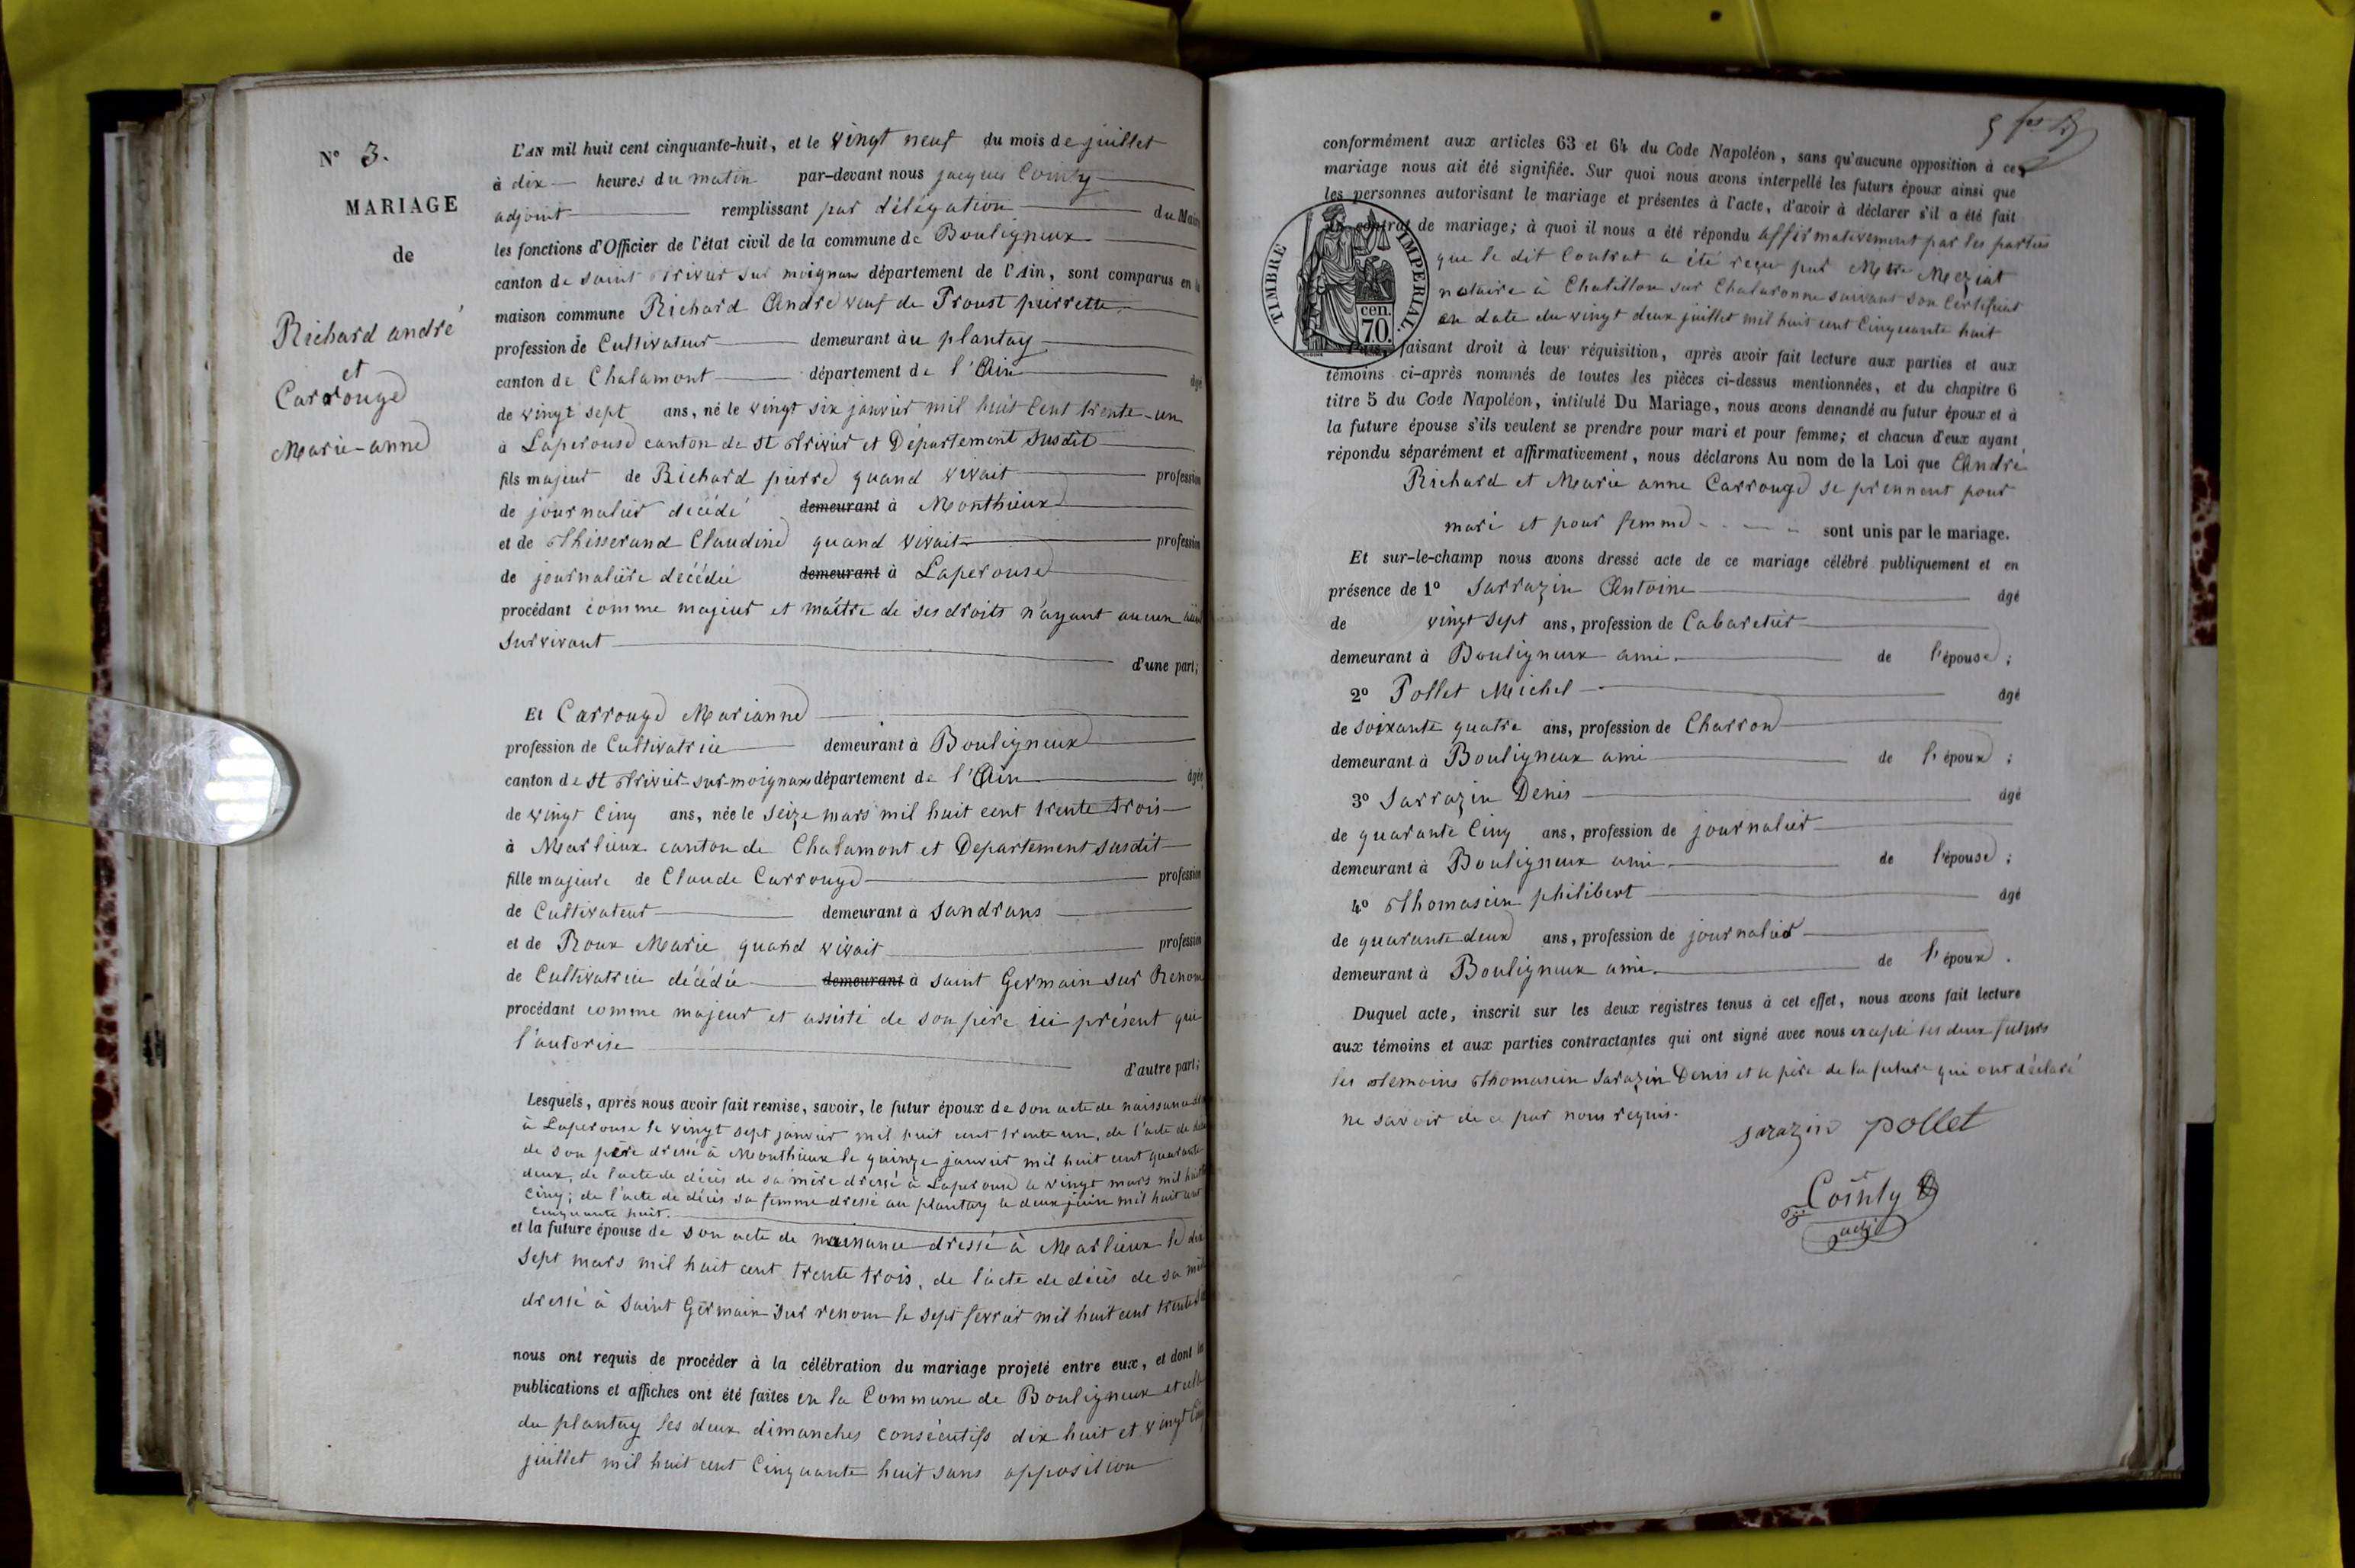 N° 3.
MARIAGE
de
Richard andré
et
Carrouge
Marie-anne
L'AN mil huit cent cinquante-huit, et le vingt neuf du mois de juillet
à dix heures du matin par-devant nous jacques Cointy
adjoint remplissant par délégation du Maire
les fonctions d'Officier de l'état civil de la commune de Bouligneux
canton de saint trivier sur moignans département de l'Ain, sont comparus en la
maison commune Richard André veuf de Proust pierrette
profession de Cultivateur demeurant àu plantay
canton de Chalamont département de l'Ain âgé
de vingt sept ans, né le vingt six janvier mil huit cent trente-un
à Laperouse canton de st trivier et Département susdit
fils majeur de Richard pierre quand vivait profession
de journalier décédé demeurant à Monthieux
et de Thisserand Claudine quand vivait profession
de journalière décédée demeurant à Laperouse
procédant comme majeur et maître de ses droits n'ayant aucun aïeul
survivant
d'une part;
Et Carrouge Marianne
profession de Cultivatrice demeurant à Bouligneux
canton de st trivier-sur-moignans département de l'Ain âgée
de vingt Cinq ans, née le seize mars mil huit cent trente trois
à Marlieux canton de Chalamont et Departement susdit
fille majeure de Claude Carrouge profession
de Cultivateur demeurant à sandrans
et de Roux Marie quand vivait profession
de Cultivatrice décédée demeurant à saint Germain sur Renom
procédant comme majeur et assisté de son père ici présent qui
l'autorise
d'autre part;
Lesquels, après nous avoir fait remise, savoir, le futur époux de son acte de naissance
à Laperouse le vingt sept janvier mil huit cent trente un, de l'acte de
de son père dressé à Monthieux le quinze janvier mil huit cent quarante
deux, de l'acte de décès de sa mère dressé à Laperouse le vingt mars mil huit
cinq; de l'acte de décès sa femme dressé au plantay le deux juin mil huit cent
cinquante huit.
et la future épouse de son acte de naissance dressé à Marlieux le dix
sept mars mil huit cent trente trois, de l'acte de décès de sa mère
dressé à saint Germain sur renom le sept fevrier mil huit cent trente
nous ont requis de procéder à la célébration du mariage projeté entre eux, et dont les
publications et affiches ont été faites en la Commune de Bouligneux et celle
du plantay les deux dimanches consécutifs dix huit et vingt Cinq
juillet mil huit cent Cinquante huit sans opposition
conformément aux articles 63 et 64 du Code Napoléon, sans qu'aucune opposition à ce
mariage nous ait été signifiée. Sur quoi nous avons interpellé les futurs époux ainsi que
les personnes autorisant le mariage et présentes à l'acte, d'avoir à déclarer s'il a été fait
un contrat de mariage; à quoi il nous a été répondu affirmativement par les parties
que le dit Contrat a été reçu par Mtre Meziat
notaire à Chatillon sur Chalaronne suivant son Certificat
en date du vingt deux juillet mil huit cent Cinquante huit
TIMBRE IMPERIAL.
cen.
70.
Puis, faisant droit à leur réquisition, après avoir fait lecture aux parties et aux
témoins ci-après nommés de toutes les pièces ci-dessus mentionnées, et du chapitre 6
titre 5 du Code Napoléon, intitulé Du Mariage, nous avons demandé au futur époux et à
la future épouse s'ils veulent se prendre pour mari et pour femme; et chacun d'eux ayant
répondu séparément et affirmativement, nous déclarons Au nom de la Loi que André
Richard et Marie anne Carrouge se prennent pour
mari et pour femme sont unis par le mariage.
Et sur-le-champ nous avons dressé acte de ce mariage célébré publiquement et en
présence de 1° Sarrazin Antoine âgé
de vingt sept ans, profession de Cabaretier
demeurant à Bouligneux ami de l'épouse;
2° Pollet Michel âgé
de soixante quatre ans, profession de Charron
demeurant à Bouligneux ami de l'époux;
3° Sarrazin Denis âgé
de quarante Cinq ans, profession de journalier
demeurant à Bouligneux ami de l'épouse;
4° Thomasin philibert âgé
de quarante deux ans, profession de journalier
demeurant à Bouligneux ami de l'époux.
Duquel acte, inscrit sur les deux registres tenus à cet effet, nous avons fait lecture
aux témoins et aux parties contractantes qui ont signé avec nous excepté les deux futurs
les temoins Thomasin Sarazin Denis et le père de la future qui ont déclaré
ne savoir de ce par nous requis.
sarazin pollet
Cointy
adj